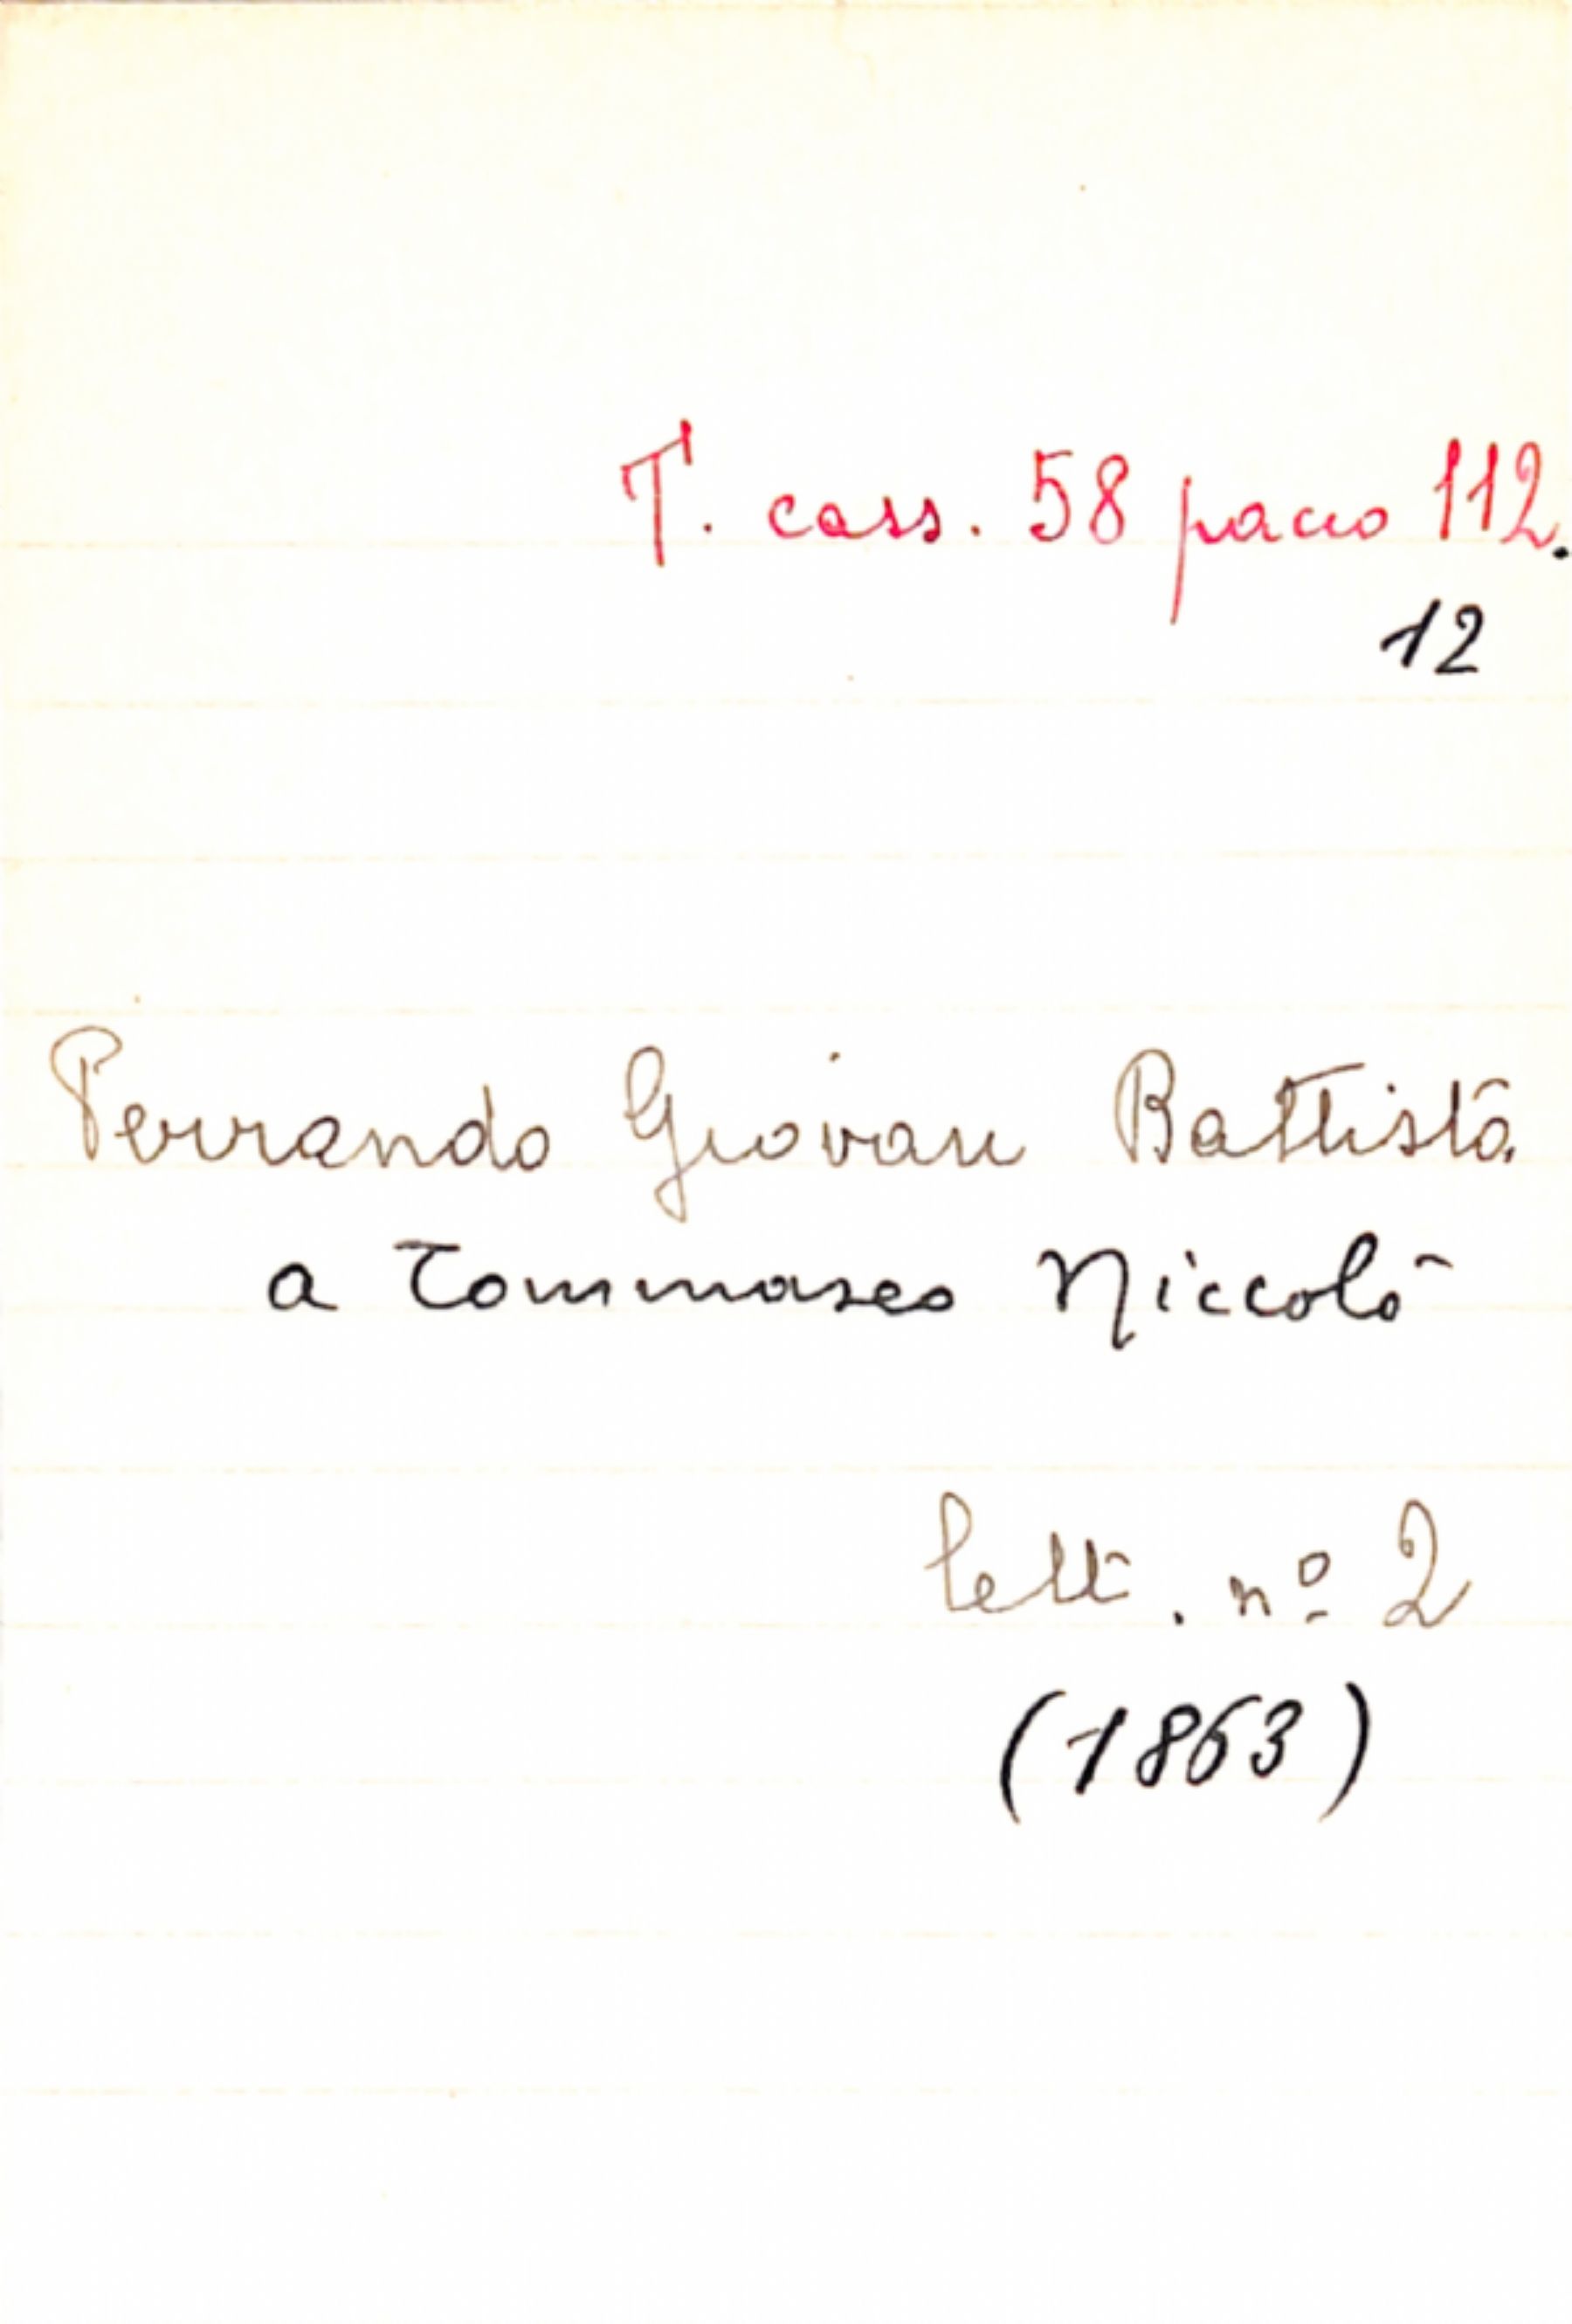 T. cass. 58 pacco 112.
12
Perrando Giovan Battista
a Tommaseo Niccolò
lett. nº 2
(1863)